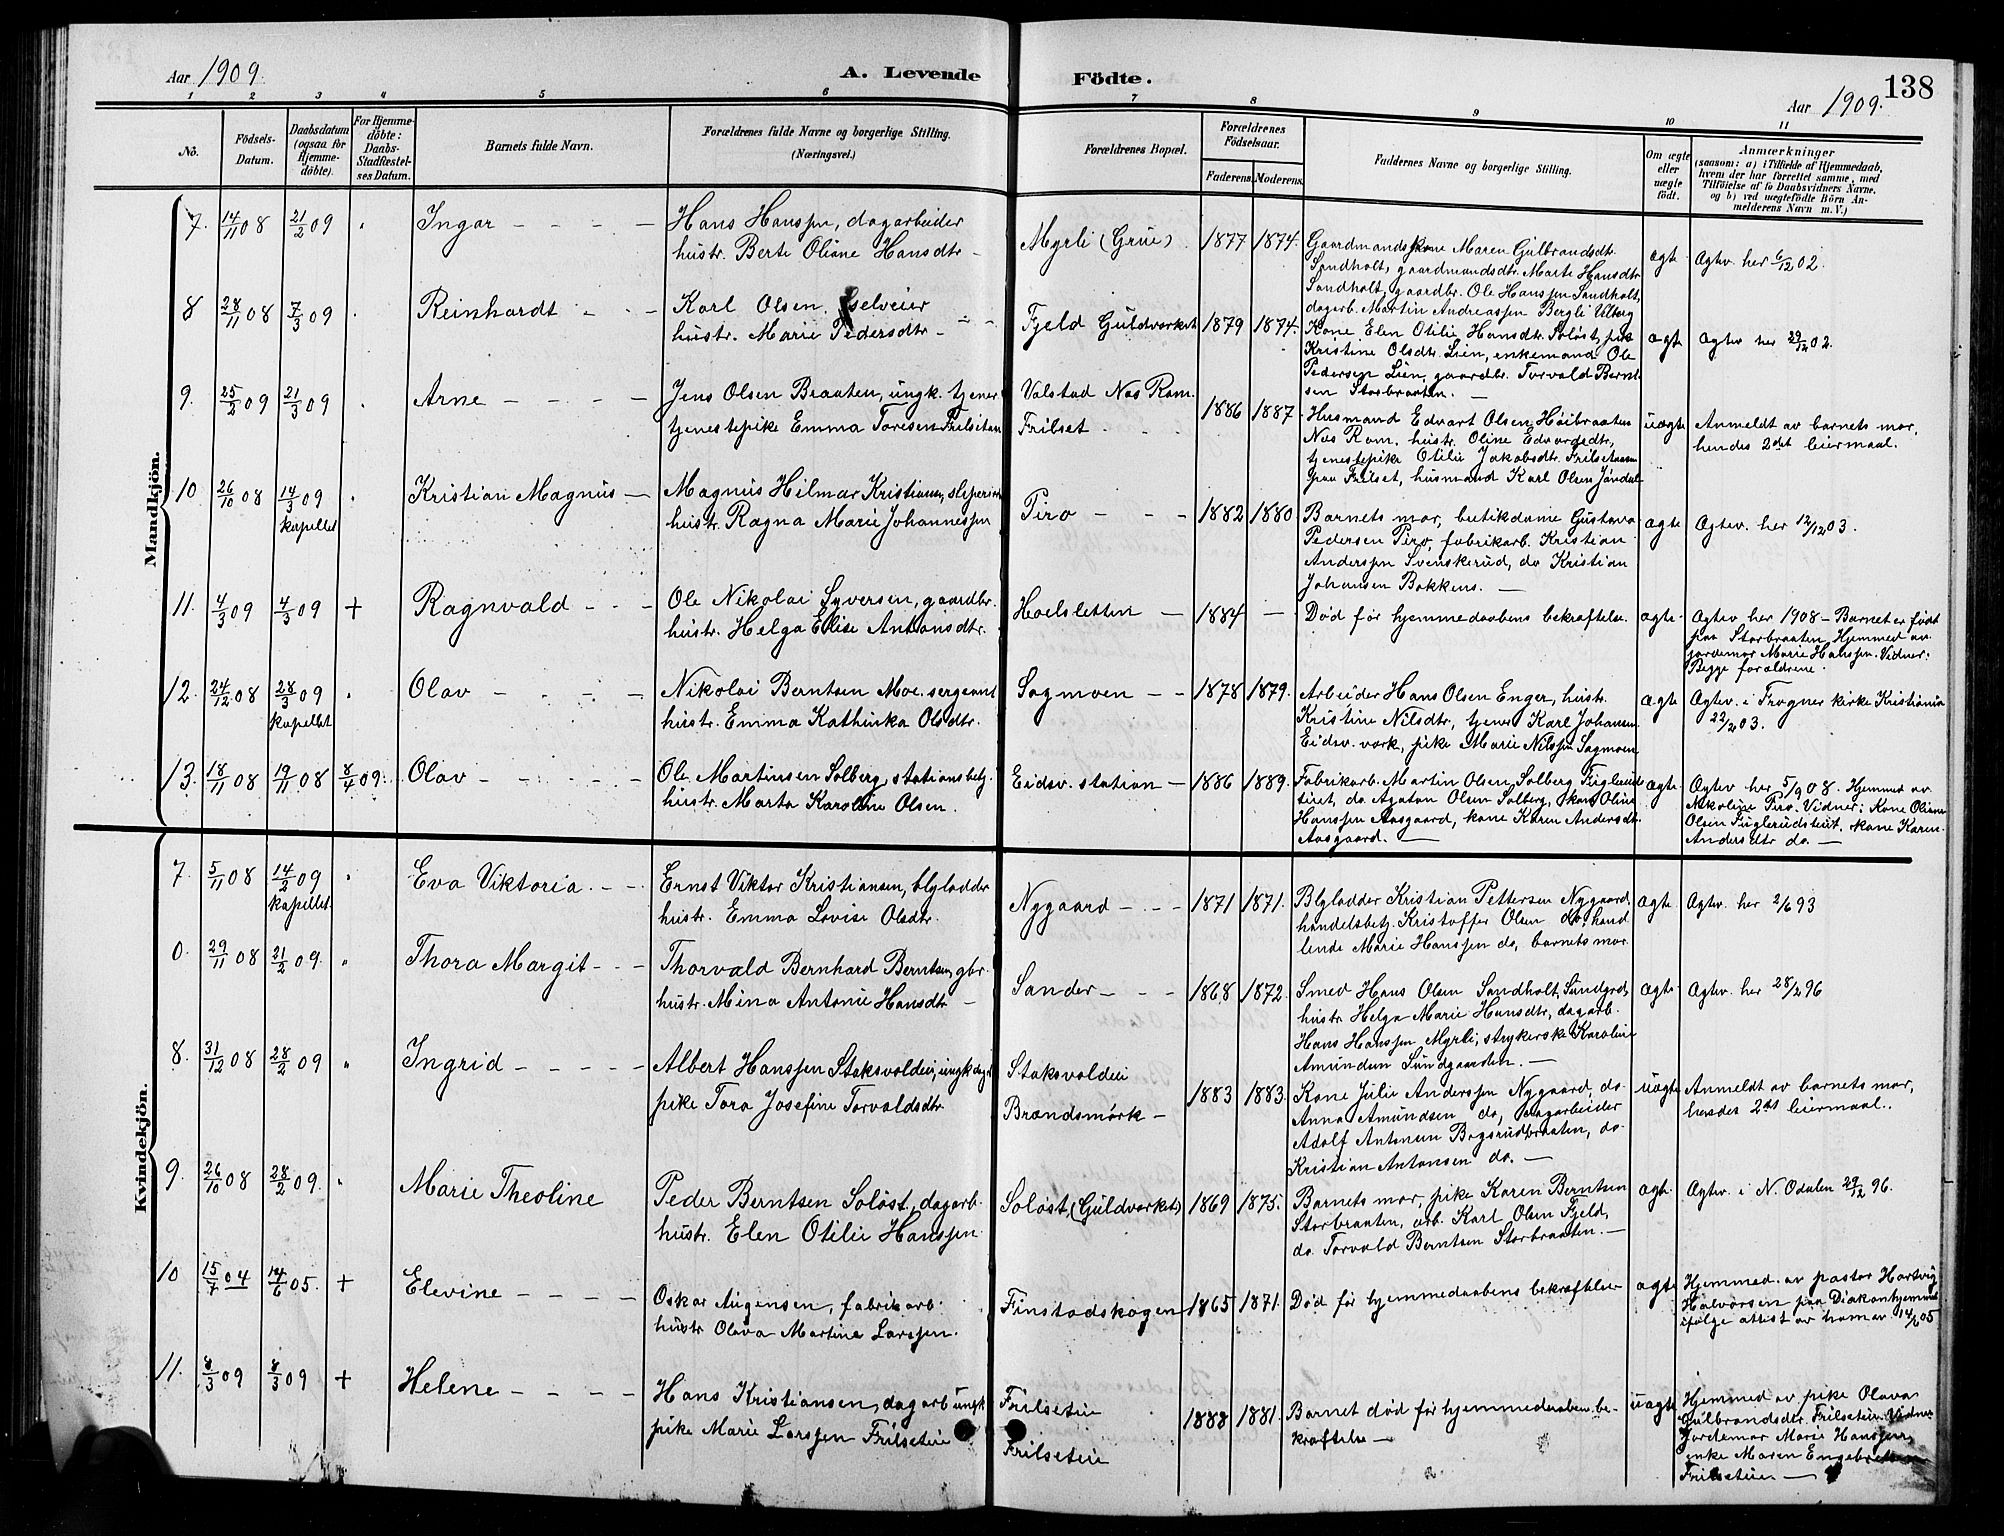 Aar 1909.
A. Levende Födte.
138
Aar 1909.
1 2 3 4 5 6 7 8 9 10 11
No.
Födsels-
Datum.
Daabsdatum
(ogsaa for
Hjemme-
döbte).
For Hjemme-
döbte:
Daabs-
Stadfæstel-
ses Datum.
Barnets fulde Navn.
Forældrenes fulde Navne og borgerlige Stilling.
(Næringsvei.)
Forældrenes Bopæl.
Forældrenes
Födselsaar.
Faderens. Moderens.
Faddernes Navne og borgerlige Stilling.
Om ægte
eller
uægte
født.
Anmærkninger
(saasom: a) i Tilfælde af Hjemmedaab,
hvem der har forrettet samme, med
Tilföielse af to Daabsvidners Navne,
og b) ved uægtefödte Börn An-
melderens Navn m. V.)
Mandkjön.
7. 14/11 08 21/2 09 Ingar - - - -
Hans Hanssen, dagarbeider
hustr. Berte Oliane Hansdtr -
Myrli (Grue) 1877 1874.
Gaardmandskone Maren Gulbrandsdtr.
Sandholt, gaardmandsdtr. Marte Hansdtr
Sandholt, gaardbr. Ole Hanssen Sandholt,
dagarb. Martin Andreassen Bergli
ægte Ægtev. her 6/12 02.
8 28/11 08 7/3 09 Reinhardt - - -
Karl Olsen selveier
hustr. Marie Pedersdtr - - -
Fjeld Guldverket 1879 1874.
Kone Elen Otilie Hansdtr. Soløst, pike
Kristine Olsdtr. Lien, enkemand Ole
Pedersen Lien, gaardbr. Torvald Bernt-
sen Storbraaten. -
ægte Ægtev her 29/12 02.
9. 25/2 09 21/3 09 Arne - - - -
Jens Olsen Braaten, ungk. tjener
tjenestepike Emma Toresen Frilsetan
Valstad Nes Rom.
Frilset - - 1886 1887.
Husmand Edvart Olsen Høibraaten
Nes Rom. hustr. Oline Edvardsdtr,
tjenestepike Otilie Jakobsdtr.
paa Frilset, husmand Karl Olsen
uægte Anmeldt av barnets mor,
hendes 2det leiermaal.
10 26/10 08 14/3 09 kapellet Kristian Magnus -
Magnus Hilmar Kristiansen, sliperiarb
hustr. Ragna Marie Johannessen
Piro - - - 1882 1880
Barnets mor, butikdame Gustava
Pedersen Piro, fabrikarb. Kristian
Anderssen Svenskerud, do Kristian
Johansen Bakkens. -
ægte Ægtev. her 12/12 03.
11. 4/3 09 4/3 09 + Ragnvald - - -
Ole Nikolai Syversen, gaardbr.
hustr. Helga Elise Antonsdtr.
Hoelsletten - 1884 -
Død før hjemmedaabens bekræftelse.
ægte. Ægtev her 1908 - Barnet er født
paa Storbraaten Hjemmed av
jordemor Marie Hanssen. Vidner:
Begge forældrene.
12. 24/12 08 28/3 09 kapellet Olav - - - -
Nikolai Berntsen Moe, sergeant
hustr. Emma Kathinka Olsdtr.
Sagmoen - - 1878 1879.
Arbeider Hans Olsen Enger, hustr.
Kristine Nilsdtr, tjener Karl Johansen
Eidsv. verk, pike Marie Nilssen Sagmoen
ægte Ægtev. i Frogner kirke Kristiania
22/2 03.
13. 18/11 08 19/11 08 8/4 09. Olav - - - -
Ole Martinsen Solberg, stationsbetj.
hustr. Marta Karoline Olsen.
Eidsv. station - 1886 1889.
Fabrikarb. Martin Olsen Solberg Fuglerud-
teiet, do. Agaton Olsen Solberg, kone Oline
Hanssen Aasgaard, kone Karen Andersdtr.
Aasgaard. -
ægte Ægtev her 5/9 08. Hjemmed av
Nikoline Piro. Vidner: Kone Oliane
Olsen Fuglerudsteiet, kone Karen
Andersdtr do. -
Kvindekjön.
7. 5/11 08 14/2 09 kapellet. Eva Viktoria. - -
Ernst Viktor Kristiansen, blyladder
hustr. Emma Lovise Olsdtr.
Nygaard - - - 1871 1871.
Blyladder Kristian Pettersen Nygaard,
handelsbetj. Kristoffer Olsen do, hand
lende Marie Hanssen do, barnets mor.
ægte Ægtev. her 2/6 93
0. 29/11 08 21/2 09. Thora Margit - - -
Thorvald Bernhard Berntsen, gbr.
hustr. Mina Antonie Hansdtr -
Sander - - - 1868 1872.
Smed Hans Olsen Sandholt, Sundgrd,
hustr Helga Marie Hansdtr, dagarb.
Hans Hanssen Myrli, strykerske Karoline
Amundsen Sundgaarden. -
ægte Ægtev. her 28/2 96
8. 31/12 08 28/2 09 Ingrid - - - - -
Albert Hanssen Staksvoldeie, ungk dag
pike Tora Josefine Torvaldsdtr
Staksvoldeie
Brandsmørk - 1883 1883.
Kone Julie Anderssen Nygaard, do.
Anna Amundsen do, dagarbeider
Adolf Antonsen Bogsrudbraaten, do.
Kristian Antonsen do. -
uægte Anmeldt av barnets mor,
hendes 2det leiermaal.
9. 26/10 08 28/2 09. Marie Theoline
Peder Berntsen Soløst, dagarb.
hustr. Elen Otilie Hanssen
Soløst, (Guldverket) 1869 1875.
Barnets mor, pike Karen Berntsen
Storbraaten, arb. Karl Olsen Fjeld,
do. Torvald Berntsen Storbraaten. -
ægt. Ægtev. i N. Odalen 29/12 96.
10 15/7 04 14/6 05. + Elevine - - - -
Oskar Augensen, fabrikarb.
hustr Olava Martine Larssen.
Finstadskogen 1865 1871.
Død før hjemmedaabens bekræftelse
ægte Hjemmed. av pastor Hartvig
Halvorsen paa Diakonhjemmet
ifølge attest av hamar 14/6 05
11. 8/3 09 8/3 09 + Helene - - - -
Hans Kristiansen, dagarb ungk
pike Marie Larssen Frilseteie
Frilseteie
Frilseteie 1888 1881.
Barnet død før hjemmedaabens be-
kræftelse -
uægte Hjemmed av pike Olava
Gulbrandsdtr. Frilseteie. Vidner
Jordemor Marie Hanssen,
enke Maren
Frilseteie -